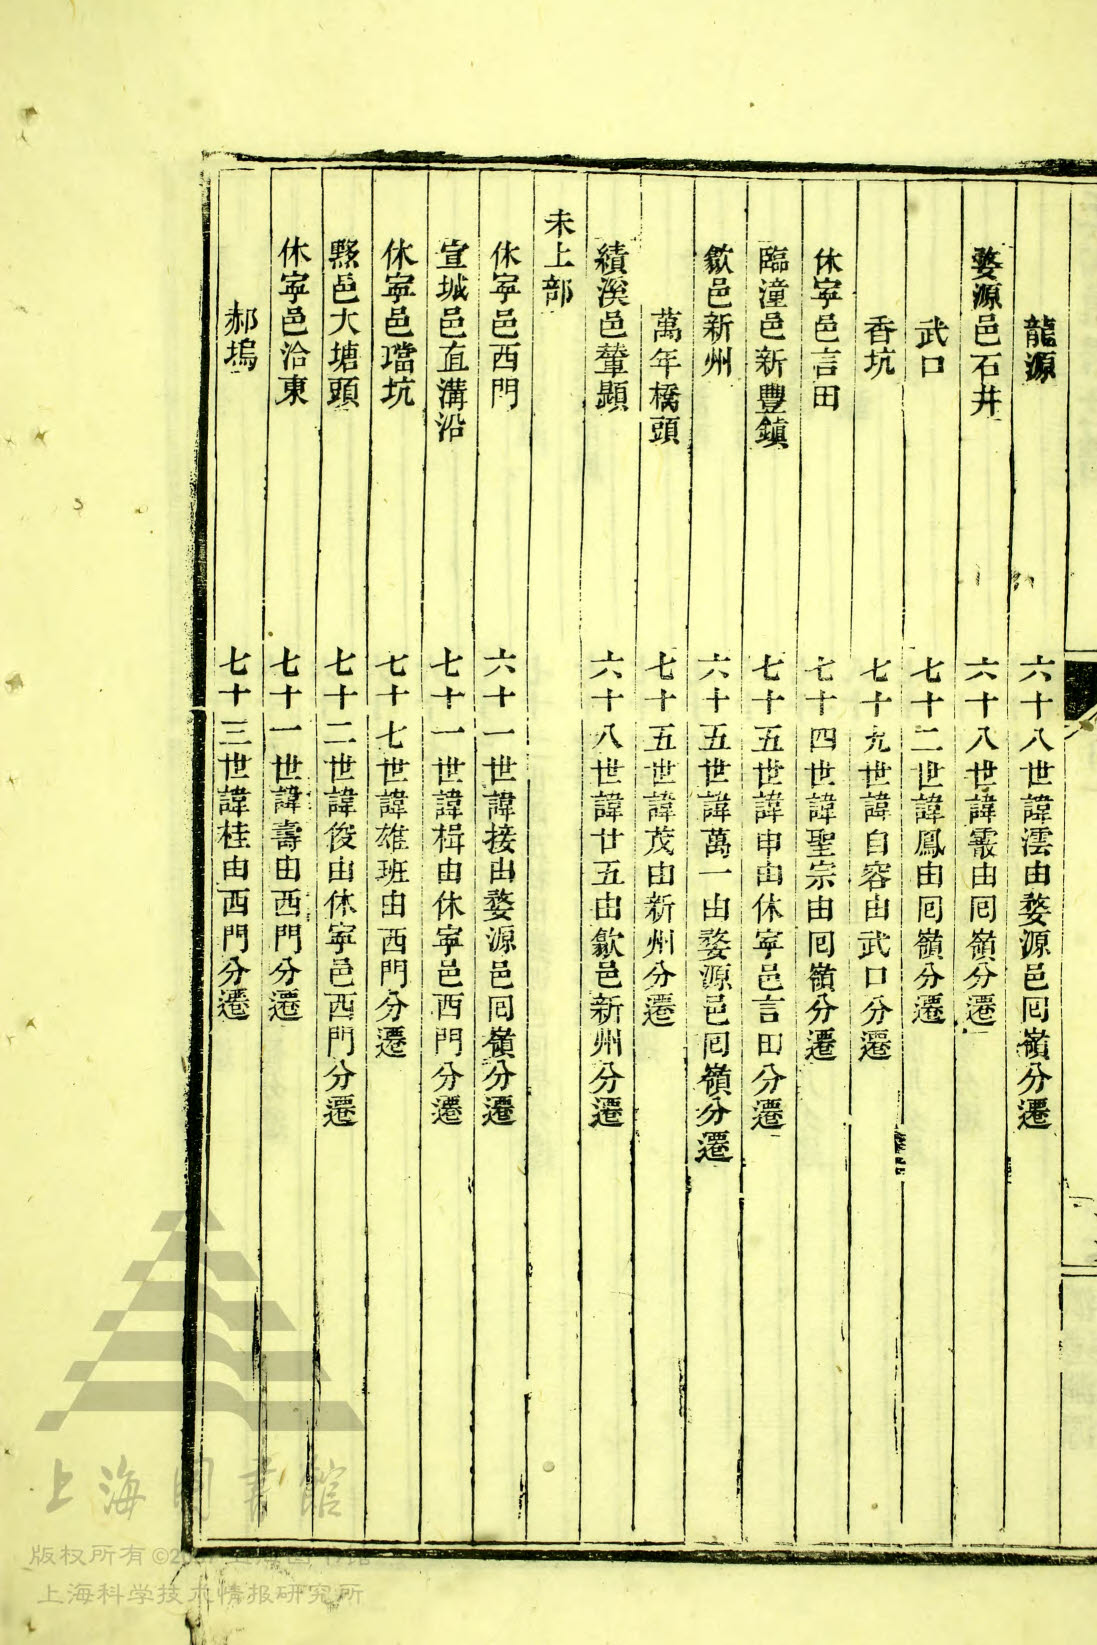 龍源 六十八世諱澐由婺源邑囘嶺分遷
婺源邑石井 六十八世諱霰由囘嶺分遷
武口 七十二世諱鳳由囘嶺分遷
香坑 七十九世諱自容由武口分遷
休寧邑言田 七十四世諱聖宗由囘嶺分遷
臨潼邑新豐鎮 七十五世諱申由休寧邑言田分遷
歙邑新州 六十五世諱萬一由婺源邑囘嶺分遷
萬年橋頭 七十五世諱茂由新州分遷
績溪邑輋顯 六十八世諱廿五由歙邑新州分遷
未上部
休寧邑西門 六十一世諱接由婺源邑囘嶺分遷
宣城邑直溝沿 七十一世諱楫由休寧邑西門分遷
休寧邑璫坑 七十七世諱雄班由西門分遷
黟邑大塘頭 七十二世諱俊由休寧邑西門分遷
休寧邑洽東 七十一世諱壽由西門分遷
郝塢 七十三世諱桂由西門分遷
上海图书馆
版权所有©
上海科学技术情报研究所